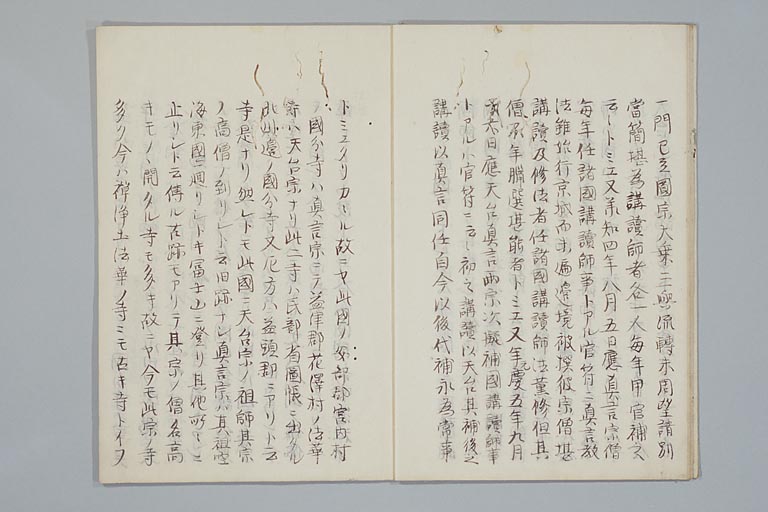 一門已立圓宗大乗三輿流轉未周望請別
當簡堪為講讀師者各一人毎年甲官補之
云々トミエ又承和四年八月五日應真言宗僧
毎年任諸國講讀師事トアル官符ニ真言教
法雖始行京城而未遍邊境被擇彼宗僧堪
講讀及修法者任諸國講讀師法董修但其
僧年臈選堪能者トミエ又元慶五年九月
六日應天台真言兩宗次擬補國講讀師事
トアル官符ニ云々初之講讀以天台其補後之
講讀以真言同任自今以後代補永為常事
トミエタリカヽル故ニヤ此國ノ安部郡宮内村
ノ國分寺ハ真言宗ニテ益津郡花澤村ノ法華
寺ハ天台宗ナリ此二寺ハ民部省圖帳ニ出タル
此州邊ノ國分寺又尼方ハ益頭郡ニアリト云
寺是ナリ然レトモ此國ニ天台宗ノ祖師其宗
ノ高僧ノ到リレト云旧跡ナレ真言宗ハ其祖空
海東國ニ廻リレトキ冨士山ニ登リ其他所々ニ
止リレト云傳ル古跡モアリテ其宗ノ僧名高
キモノヽ開タル寺モ多キ故ニヤ今モ此宗ノ寺
多ク今ハ禅浄土法華ノ寺ニモ古キ寺トイヘ